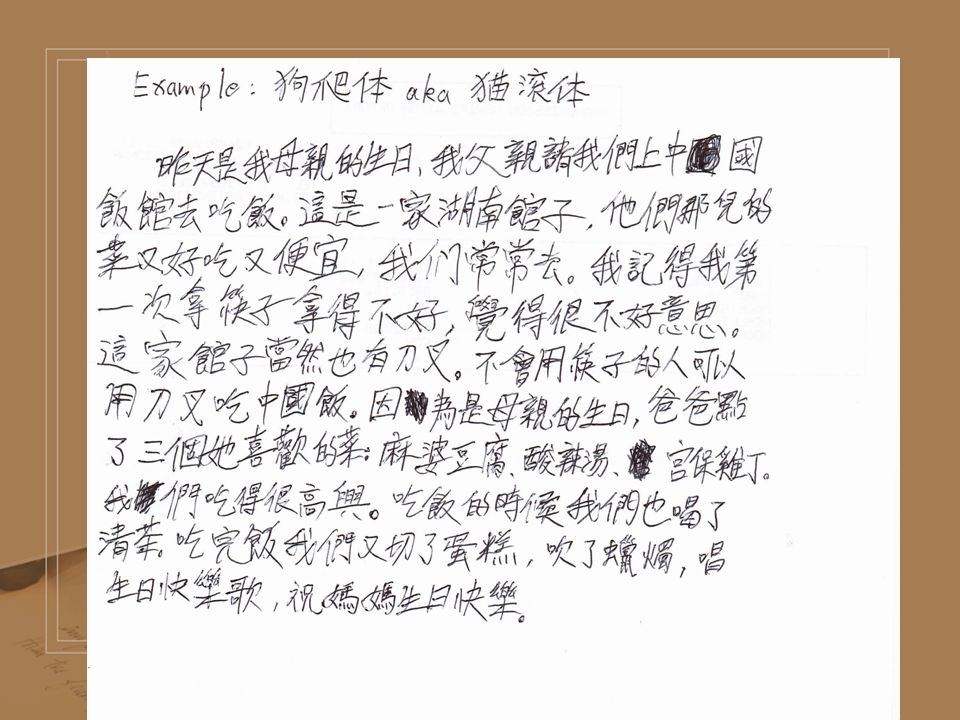 Example: 狗爬体 aka 猫滚体
昨天是我母親的生日,我父親請我們上中國
飯館去吃飯。這是一家湖南館子,他們那兒的
菜又好吃又便宜,我们常常去。我記得我第
一次拿筷子拿得不好,覺得很不好意思。
這家館子當然也有刀叉。不會用筷子的人可以
用刀叉吃中國飯。因為是母親的生日,爸爸點
了三個她喜歡的菜:麻婆豆腐、酸辣湯、宮保雞丁。
我們吃得很高興。吃飯的時候我們也喝了
清茶。吃完飯我們又切了蛋糕,吹了蠟燭,唱
生日快樂歌,祝媽媽生日快樂。